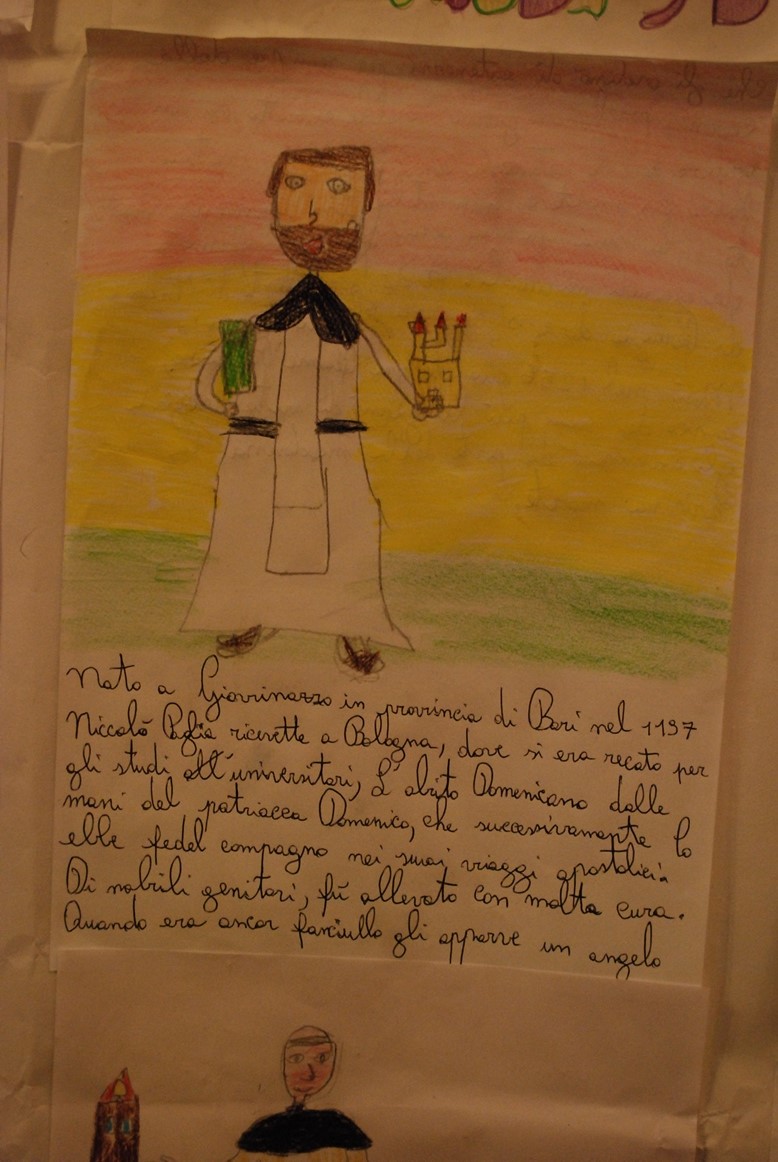 Nato a Giovinazzo in provincia di Bari nel 1197
Niccolò Paglia ricevette a Bologna, dove si era recato per
gli studi all'universitari, L'abito Domenicano dalle
mani del patriacca Domenico, che successivamente lo
ebbe fedel compagno nei suoi viaggi apostolici.
Di nobili genitori, fù allevato con molta cura.
Quando era ancor fanciullo gli apparve un angelo